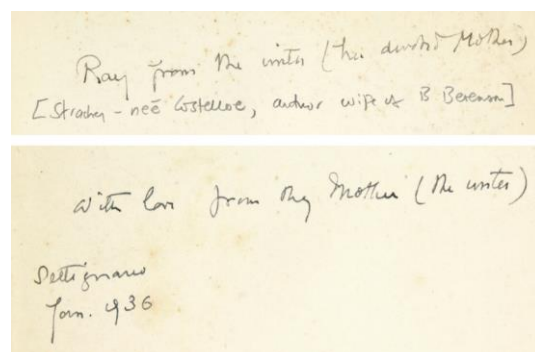 Ray from the writer (her devoted Mother)
[Strachey - neé Costelloe, author wife of B Berenson]
With love from thy Mother (the writer)
Settignano
Jan. 1936